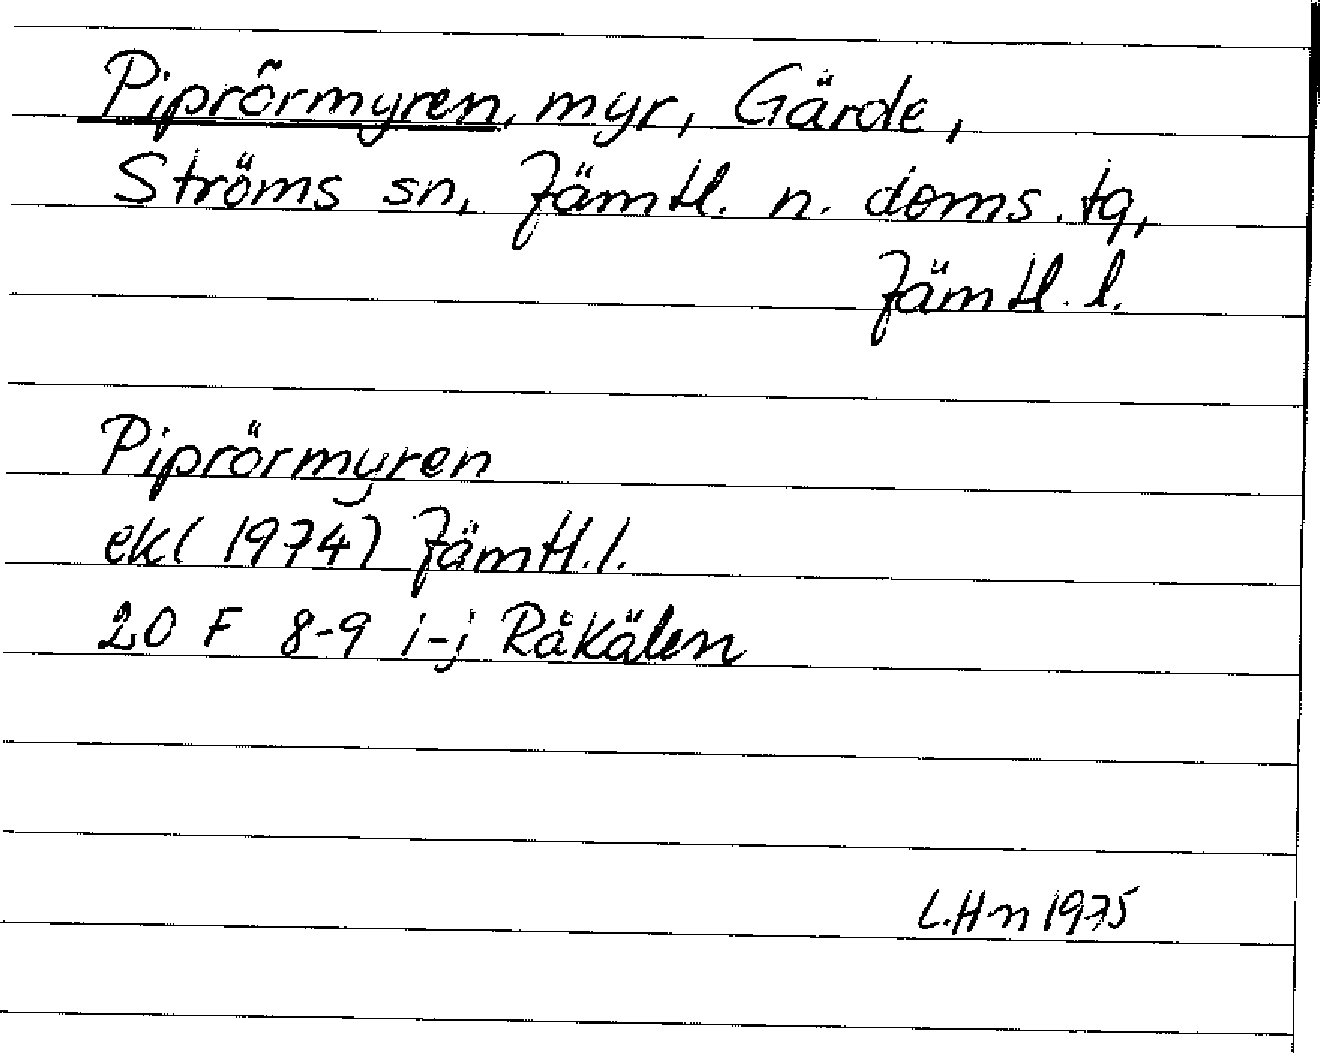 Piprörmyren, myr, Gärde,
Ströms sn, Jämtl. n. doms. tg,
Jämtl. l.
Piprörmyren
ek( 1974) Jämtl. l.
20 F 8-9 i-j Råkälen
L.Hn 1975